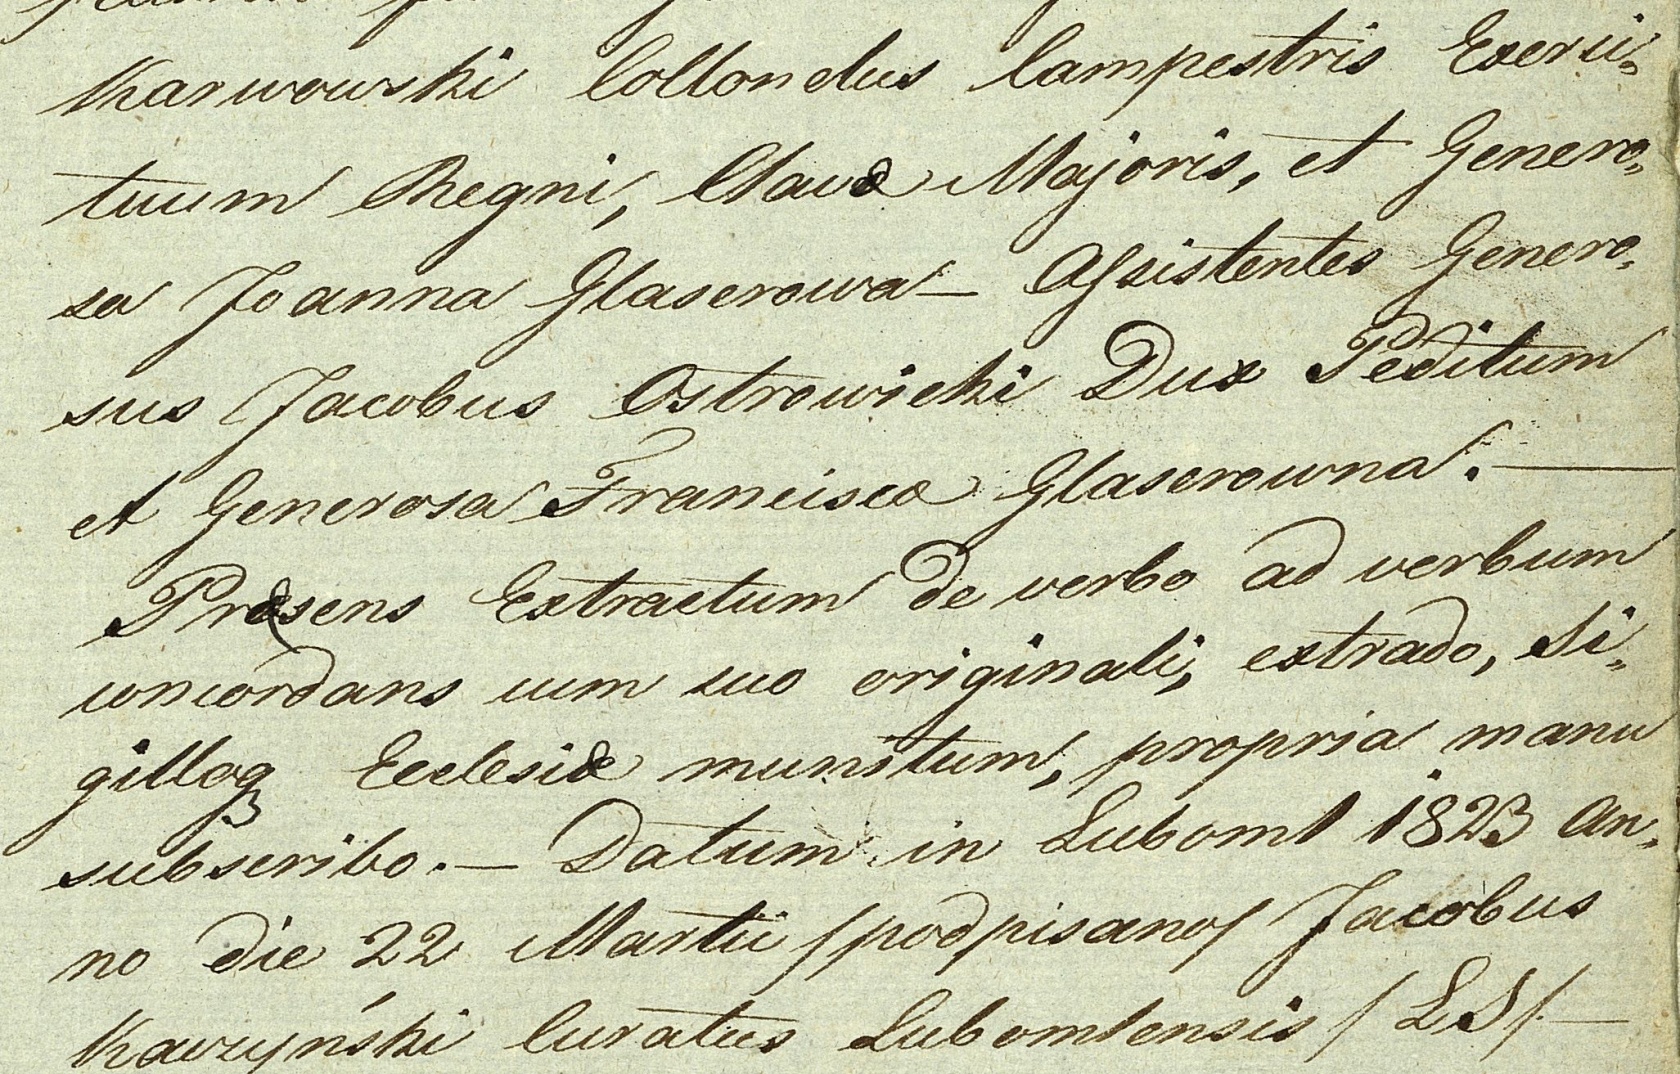 Karwowski Collonelus Campestris Exerci-
tuum Regni, Clavæ Majoris, et Genero-
sa Joanna Glaserowa — Assistentes Genero-
sus Jacobus Ostrowicki Dux Peditum
et Generosa Francisca Glaserowna. —
Præsens Extractum de verbo ad verbum
concordans cum suo originali, extrado, Si-
gilloq Ecclesiæ munitum, propria manu
subscribo. — Datum in Luboml 1823 An-
no die 22 Martii /podpisano/ Jacobus
Kaczyński Curatus Lubomlensis /LS/ —